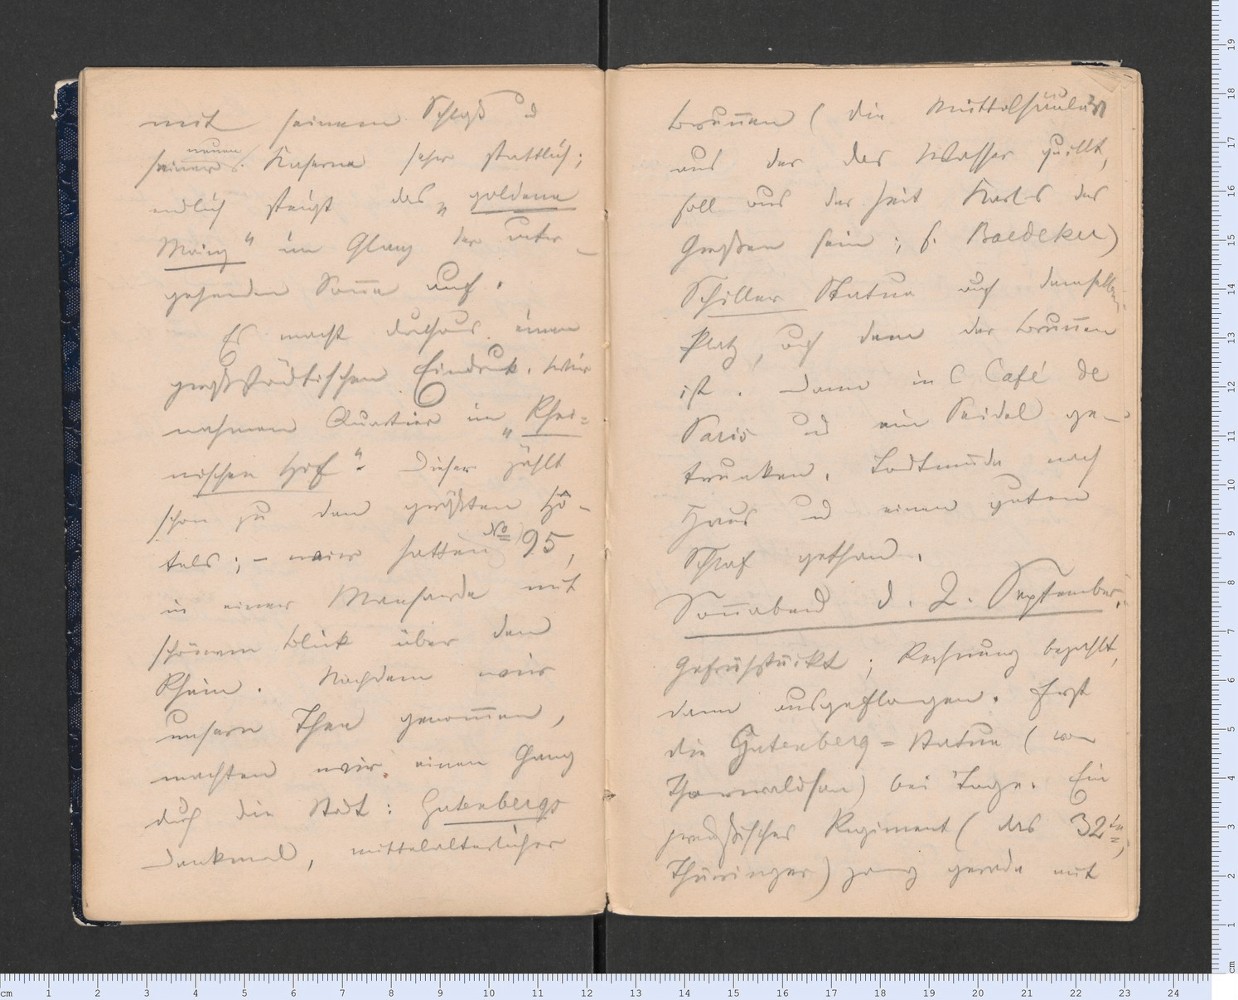 mit seinem Schloß u
seiner neuen Kaserne sehr stattlich;
endlich steigt das „goldene
Mainz“ im Glanz der unter-
gehenden Sonne auf.
Es macht durchaus einen
großstädtischen Eindruck. Wir
nahmen Quartier im „Rhei-
nischen Hof“. Dieser zählt
schon zu den größten Hô-
tels; – wir hatten No 95,
in einer Mansarde mit
schönem Blick über den
Rhein. Nachdem wir
unsern Thee genommen,
machten wir einen Gang
durch die Stadt: Gutenbergs
Denkmal, mittelalterlicher
Brunnen (die Mittelsäule,
aus der das Wasser quillt,
soll aus der Zeit Karls des
Großen sein; s. Baedeker)
Schiller Statue auf demselben
Platz, auf dem der Brunnen
ist. Dann in C Café de
Paris u ein Seidel ge-
trunken. Todtmüde nach
Haus u einen guten
Schlaf gethan.
Sonnabend d. 2. September.
Gefrühstückt; Rechnung bezahlt,
dann ausgeflogen. Erst
die Gutenberg=Statue (von
Thorwaldsen) bei Tage. Ein
preußisches Regiment (das 32te,
Thüringer) zog gerade mit